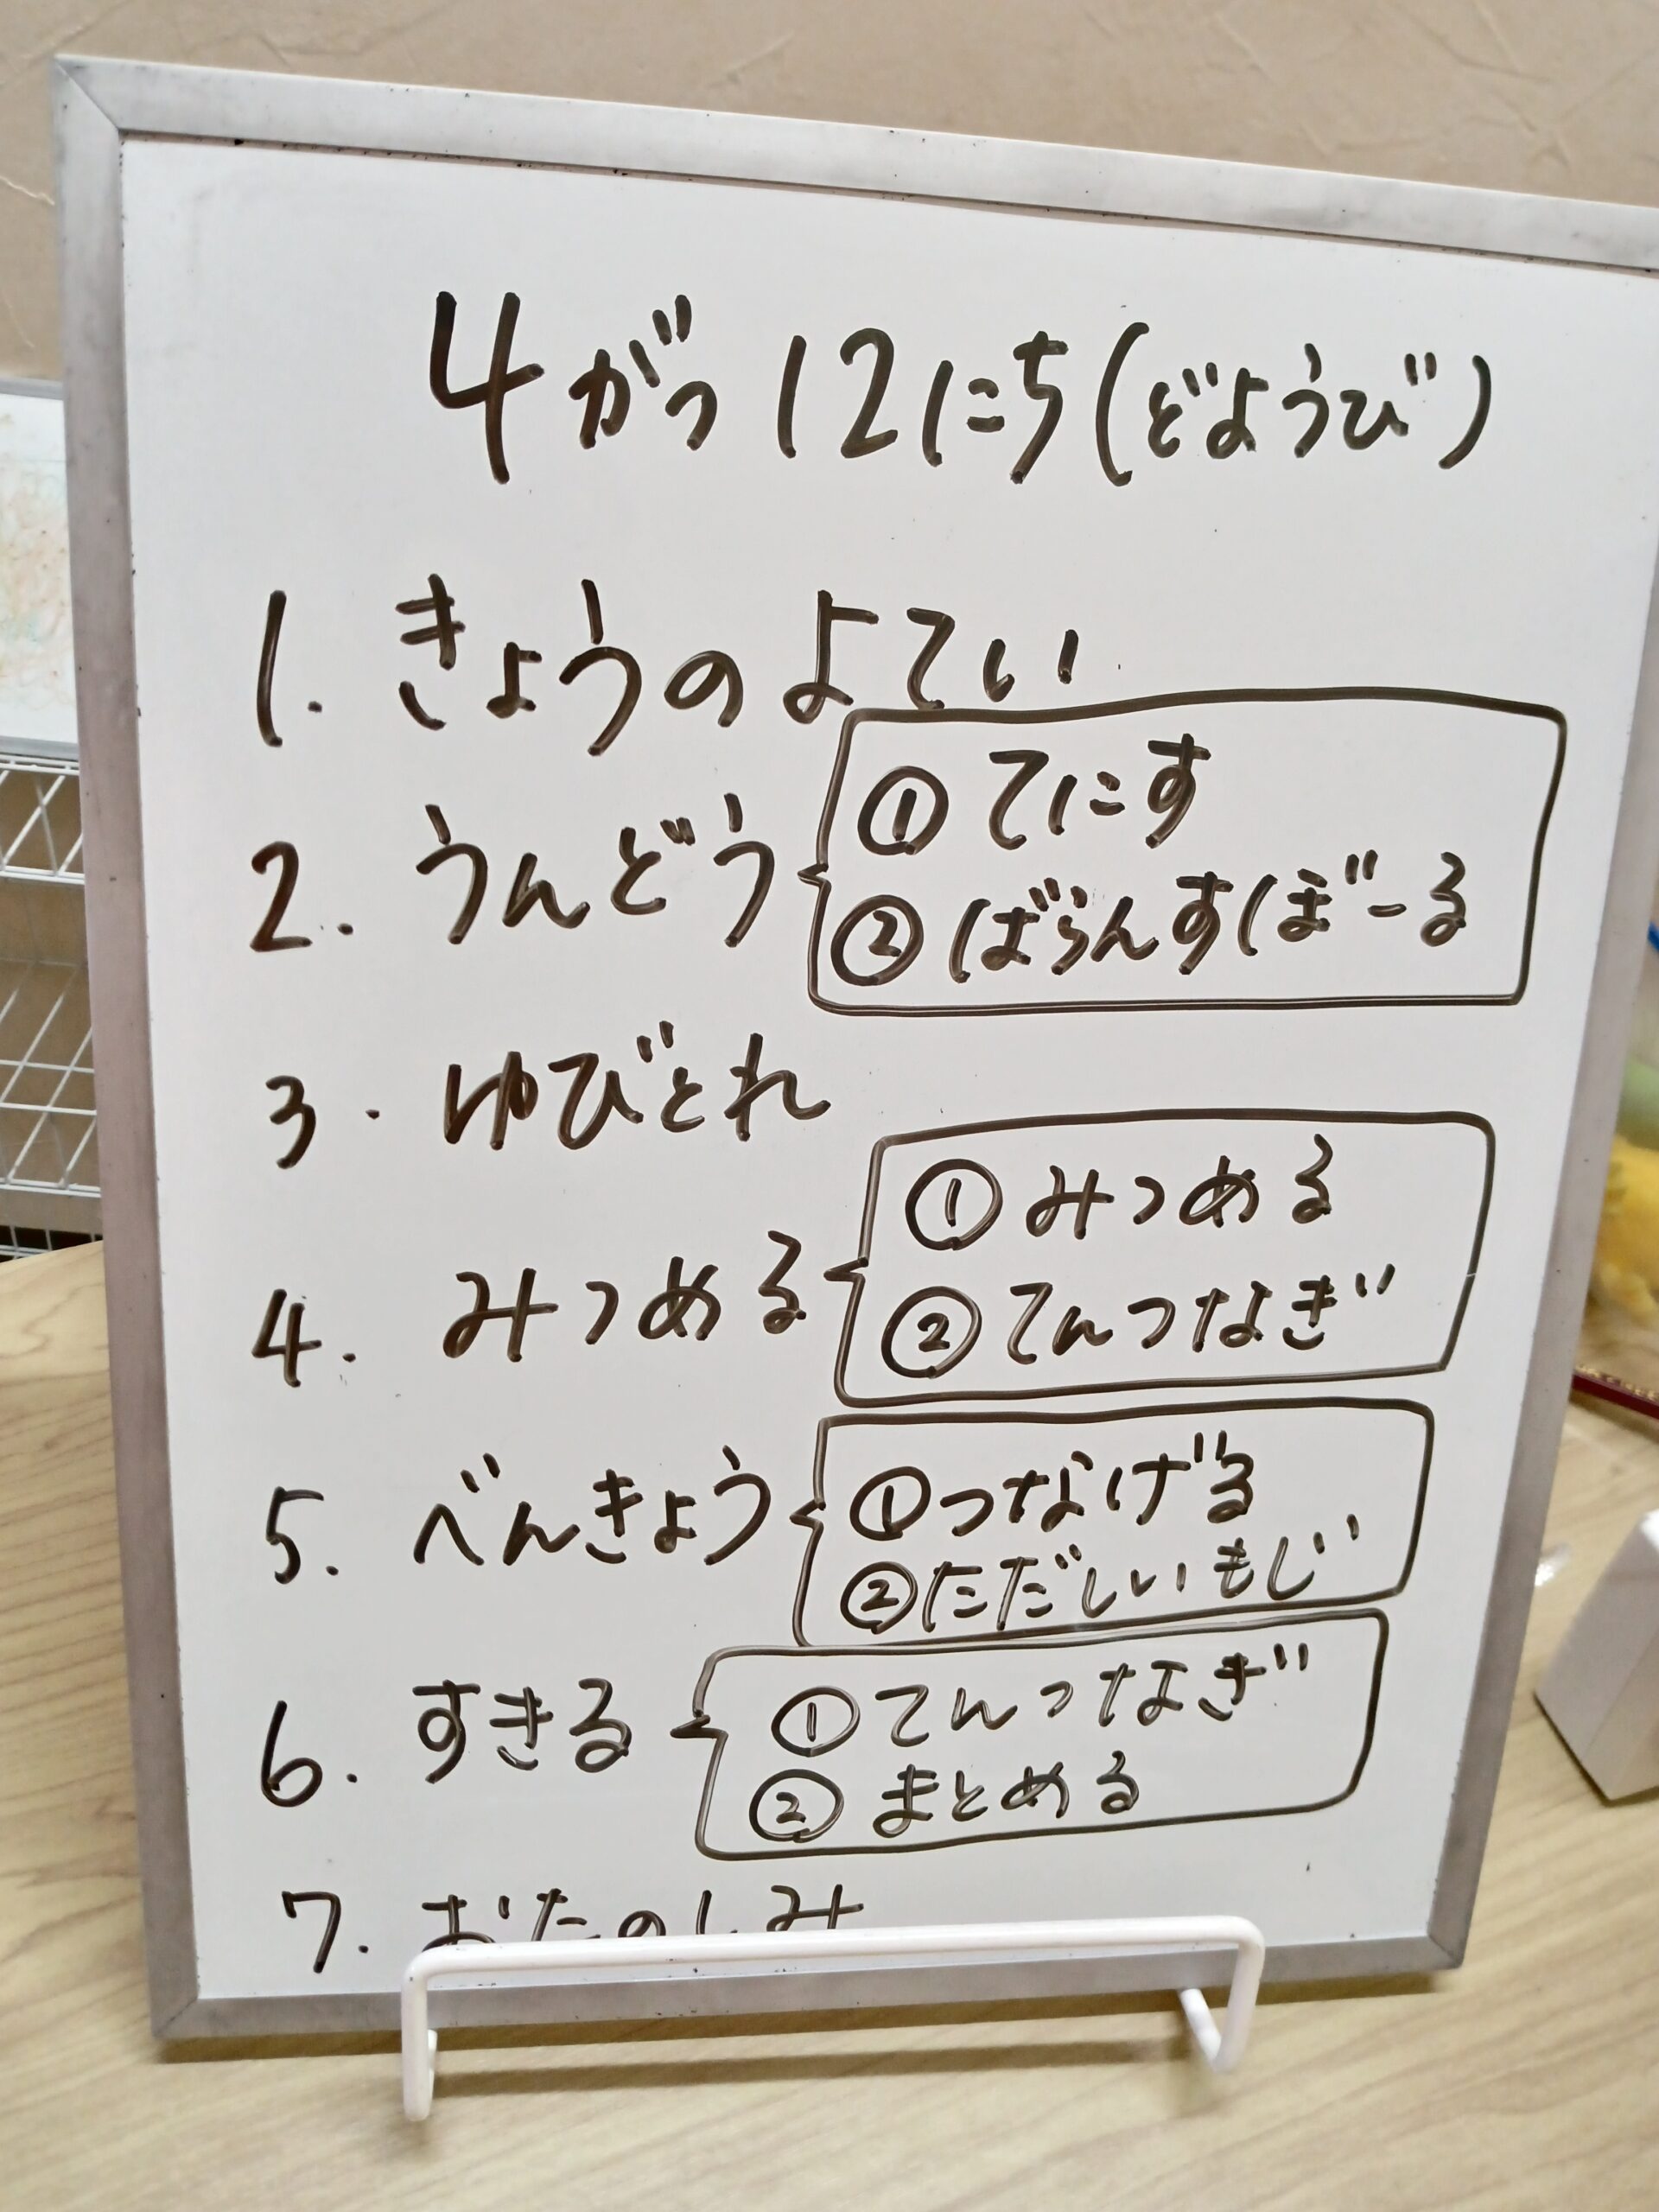 4がつ12にち(どようび)
1. きょうのよてい
2. うんどう
①てにす
②ばらんすぼーる
3. ゆびとれ
4. みつめる
①みつめる
②てんつなぎ
5. べんきょう
①つなげる
②ただしいもじ
6. すきる
①てんつなぎ
②まとめる
7. おたのしみ